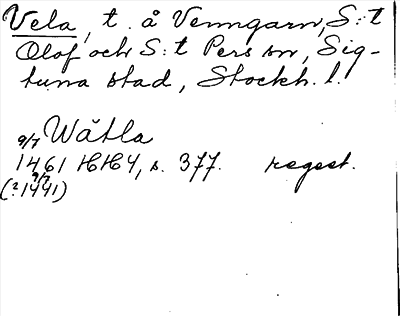 Vela, t. å Venngarn, S:t
Olof och S:t Pers sn, Sig-
tuna stad, Stockh. l.
Wätla
9/7
1461 HH4, s. 377. regest.
9/7
(?1441)